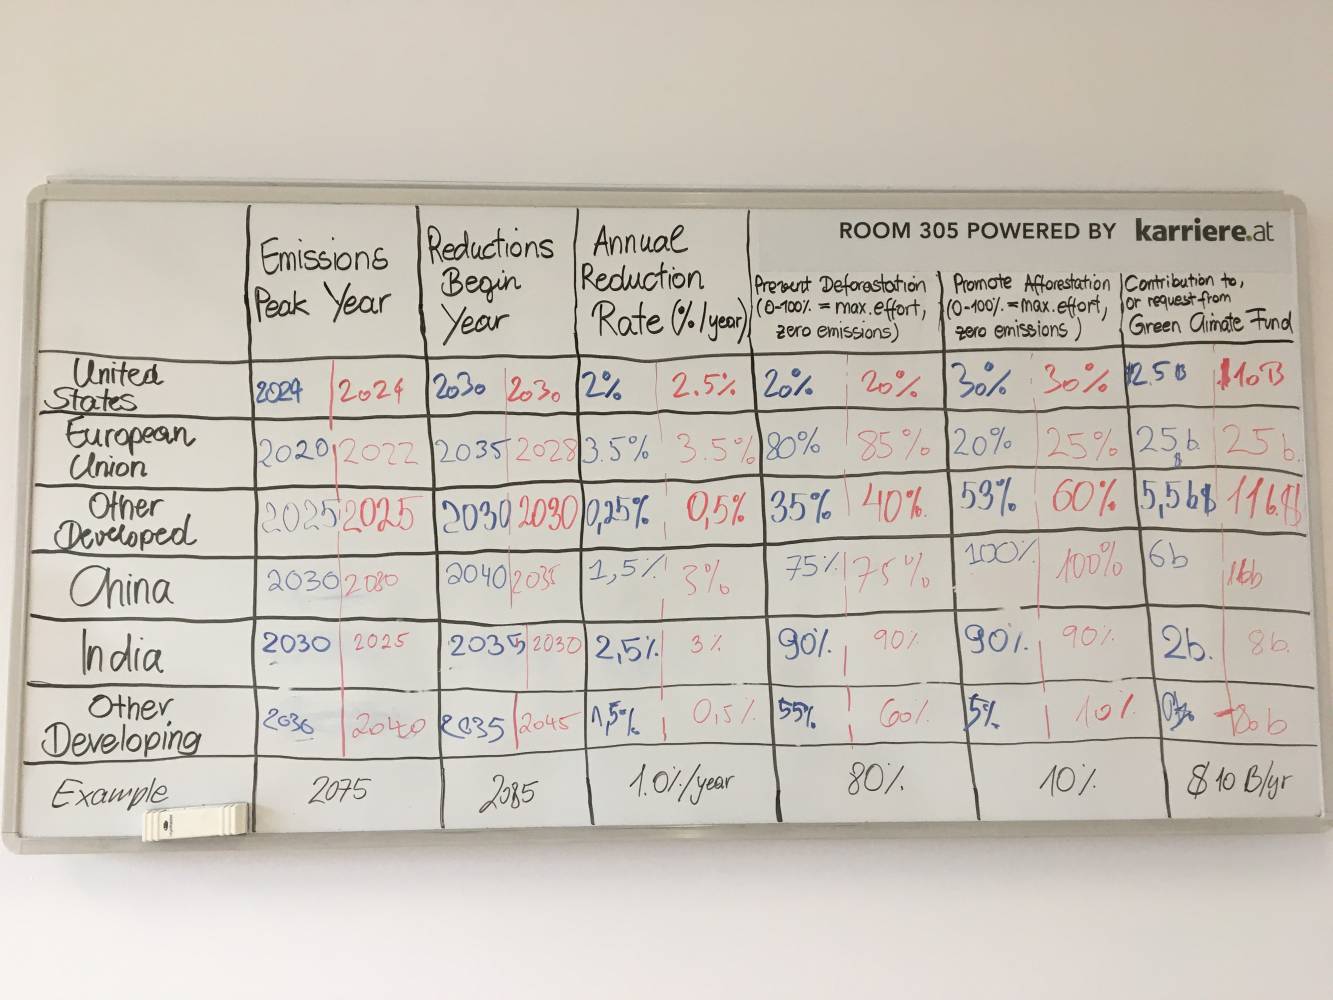 ROOM 305 POWERED BY karriere.at
Emissions
Peak Year
Reductions
Begin
Year
Annual
Reduction
Rate (%/year)
Prevent Deforestation
(0-100% = max. effort,
zero emissions)
Promote Afforestation
(0-100% = max. effort,
zero emissions)
Contribution to,
or request from
Green Climate Fund
United
States
2024 2024 2030 2030 2% 2.5% 20% 20% 30% 30% $2.5B $10B
European
Union
2020 2022 2035 2028 3.5% 3.5% 80% 85% 20% 25% 25b $ 25b.
Other
Developed
2025 2025 2030 2030 0,25% 0,5% 35% 40% 53% 60% 5,5b$ 11b$
China
2030 2030 2040 2035 1,5% 3% 75% 75% 100% 100% 6b
India
2030 2025 2035 2030 2,5% 3% 90% 90% 90% 90% 2b. 8b.
Other
Developing
2036 2040 2035 2045 1,5% 0,5% 55% 60% 5% 10%
Example 2075 2085 1.0%/year 80% 10% $10 B/yr